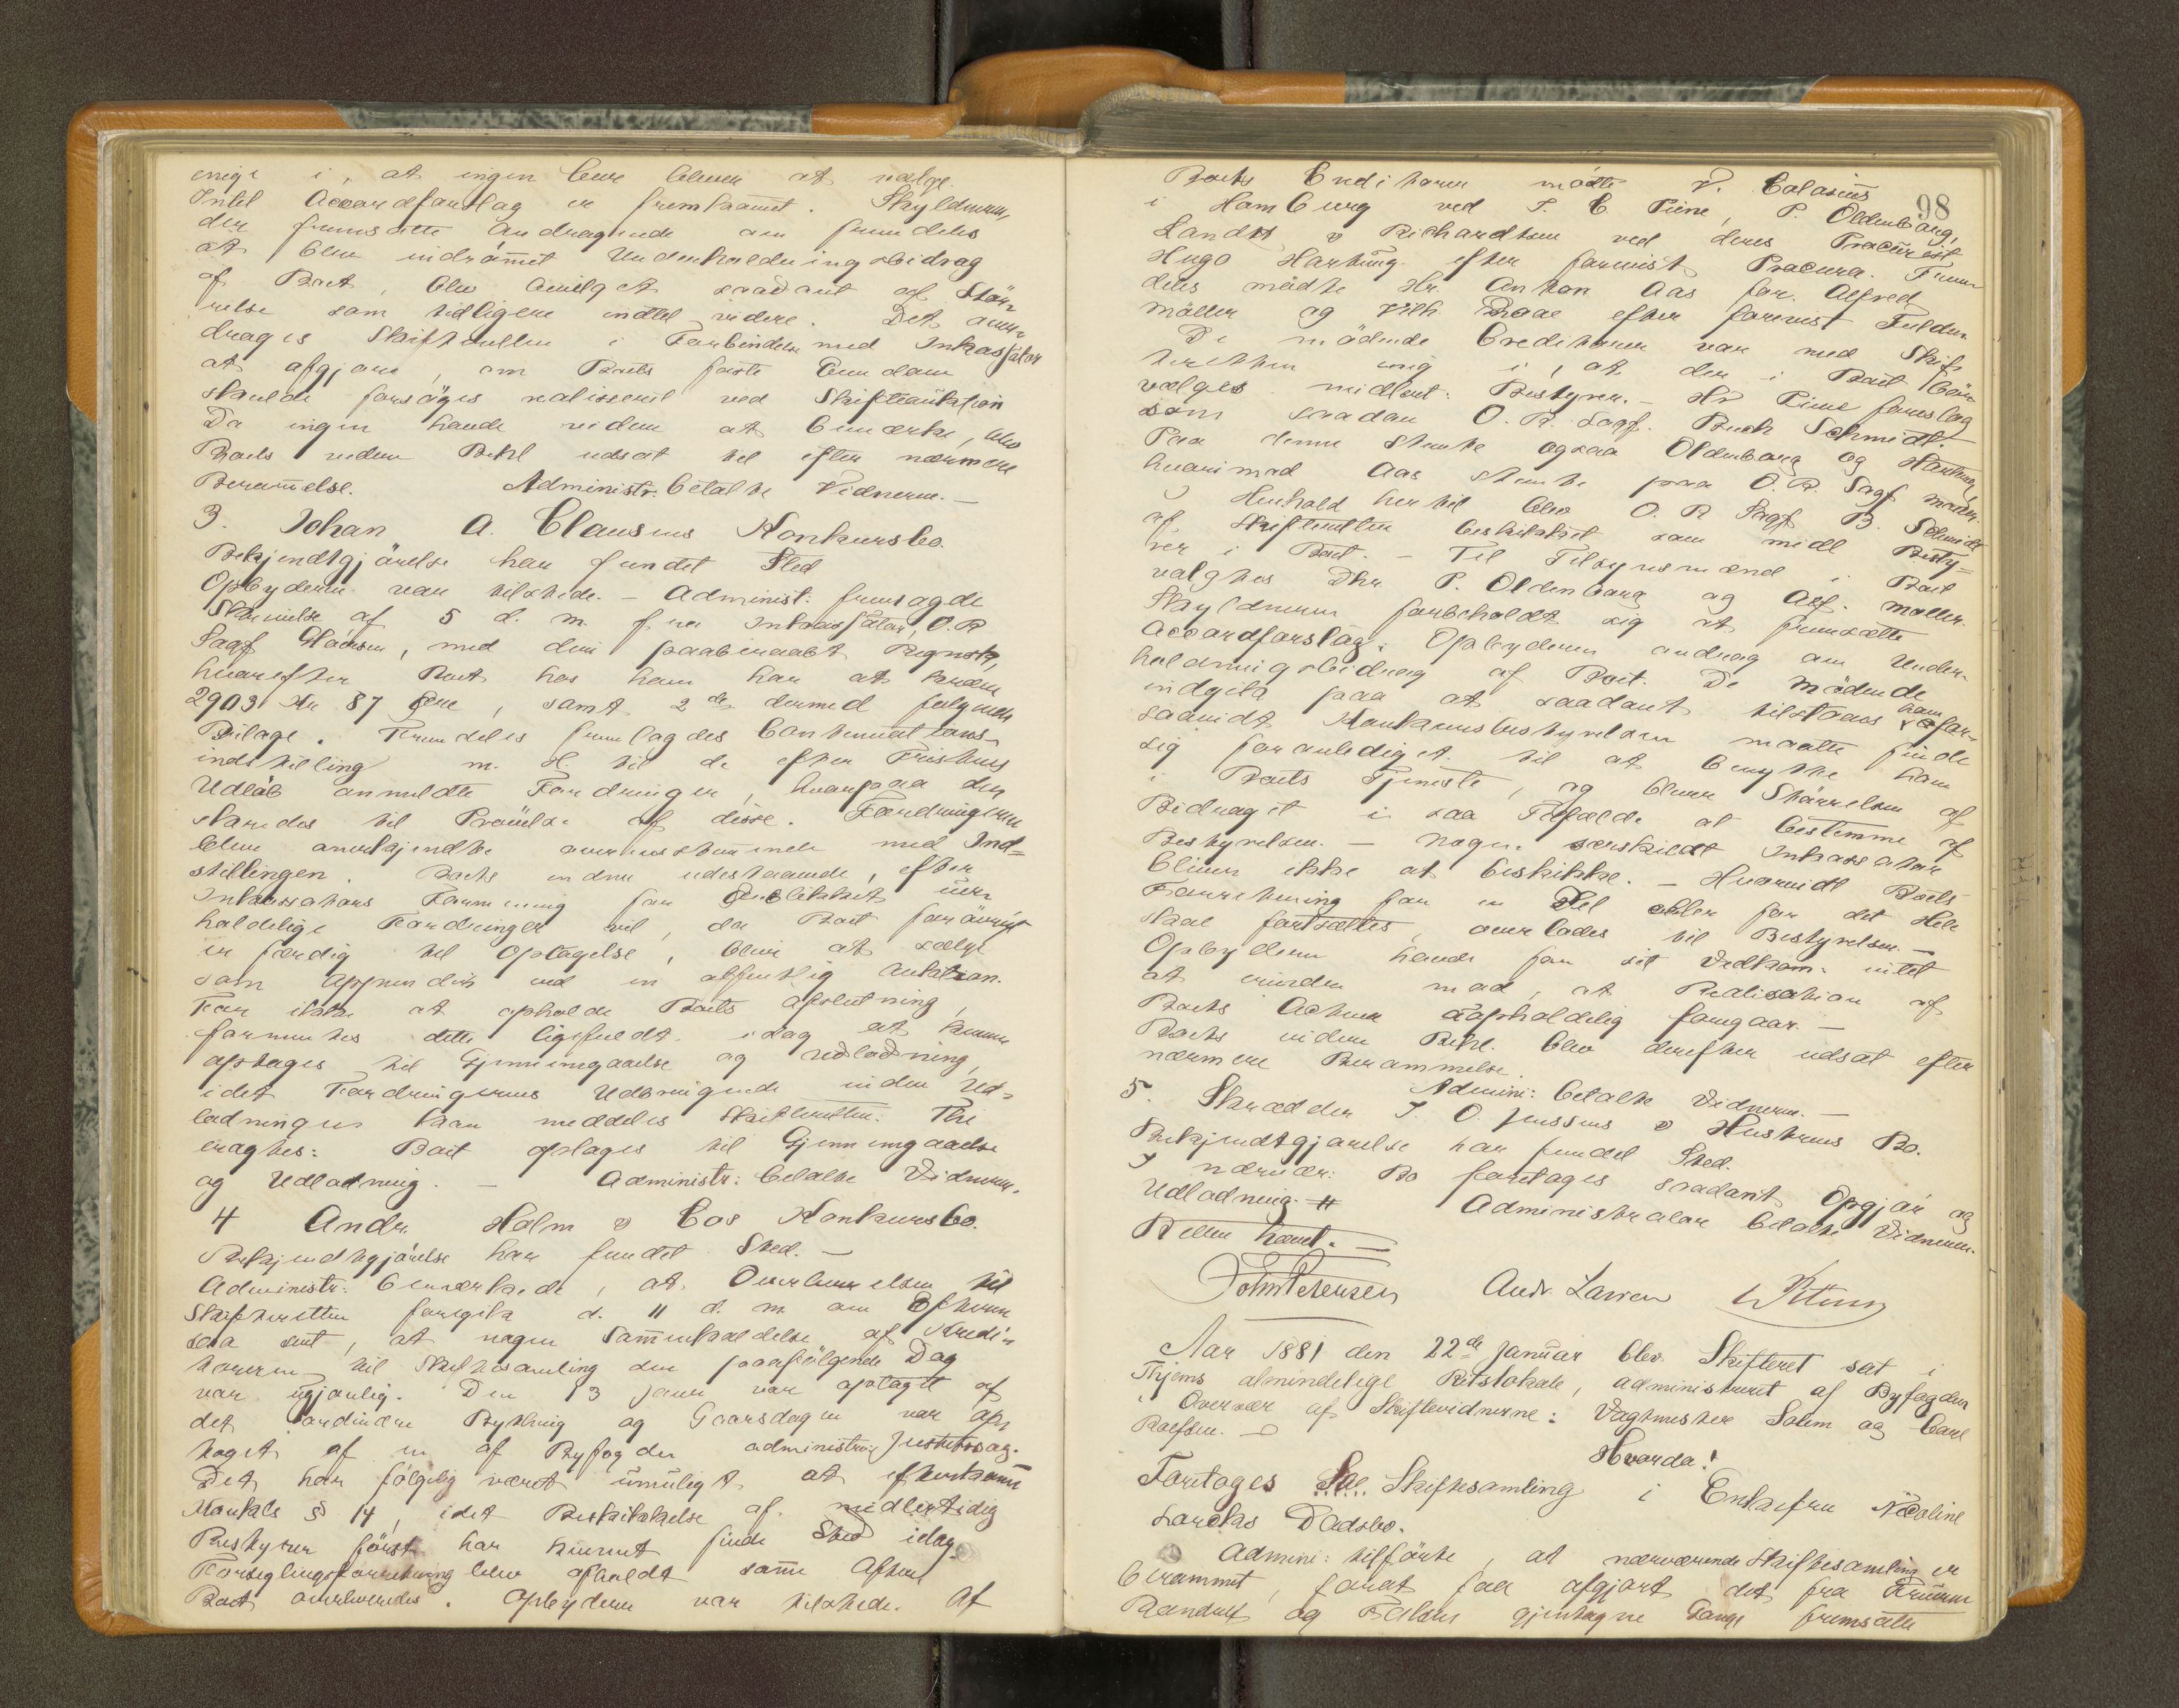 enige i, at ingen bliver at vælge.
Intet Accordforslag er fremkommet. Skyldneren,
der fremsatte Andragende om fremdeles
at blive indrømmet Underholdningsbidrag
af Boet, blev bevilget saadant af Stør-
relse som tidligere indtil videre. Det over-
drages Skifteretten i Forbindelse med Inkassator
at afgjøre, om Boets faste Eiendom
skulde forsøges realisseret ved Skifteauktion
Da ingen havde videre at bemærke, blev
Boets videre Behl udsat til efter nærmere
Berammelse. Administr. betalte Vidnerne.—
3. Johan A. Clausens Konkursbo.
Bekjendtgjørelse har fundet Sted
Opbyderen var tilstede. — Administ: fremlagde
Skrivelse af 5 d. m. fra Inkassator, O. R.
Sagf , med deri paaberaabt Regnsk,
hvorefter Boet hos ham har at kræve
2903 Kr 87 Øre, samt 2 de dermed følgende
Bilage. Fremdeles fremlagdes
indstilling m. H. til de efter Fristens
Udløb anmeldte Fordringer, hvorpaa der
skredes til Prøvelse af disse. Fordringerne
bleve anerkjendte overensstemmende med Ind-
stillingen. Boets endnu udestaaende, efter
Inkassators Formening for uer-
holdelige Fordringer vil, da Boet forøvrigt
er færdig til Optagelse, blive at sælge
som ved en offentlig Auktion.
For ikke at opholde Boets Afslutning,
formentes dette ligefuldt idag at kunne
optages til Gjennemgaaelse og Udlodning,
idet Fordringernes Udbringende inden Ud-
lodningen kan meddeles Skifteretten. Thi
eragtes: Boet optages til Gjennemgaaelse
og Udlodning. — Administr: betalte Vidnerne.
4 Andr. Holm & Cos Konkursbo.
Bekjendtgjørelse har fundet Sted. —
Administr: bemærkede, at Overleverelsen til
Skifteretten foregik d. 11 d. m. om Eftern
saa sent, at nogen Sammenkaldelse af Kredi-
torerne til Skiftesamling den paafølgende Dag
var ugjørlig. Den 13 Janr var optaget af
det ordinære Bything og Gaarsdagen var op-
taget af en af Byfogden administrer Justitssag.
Det har følgelig været umuligt at efterkomme
Konkls § 14, idet Beskikkelse af midlertidig
Bestyrer først har kunnet finde Sted idag.
Forseglingsforretning blev afholdt samme Aften
Boet overleveredes. Opbyderen var tilstede. Af
98
Boets Creditorer mødte
i Hamburg ved , P. Oldenborg,
Landt & Richardsen ved deres Procurist
Hugo Hartung efter forevist Procura. Frem-
deles mødte Hr. Anton Aas for Alfred
Møller og efter forevist Fuldm.
De mødende Creditorer var med Skif-
teretten enig i, at der i Boet bør
vælges midlert: Bestyrer. — Hr forslog
som saadan O. R. Sagf. Buch Schmidt.
Paa denne stemte ogsaa Oldenborg og Hartung
hvorimod Aas stemte paa O. R. Sagf
I Henhold hertil blev O. R Sagf B. Schmidt
af Skifteretten beskikket som midl Besty-
rer i Boet. — Til Tilsynsmænd i Boet
valgtes Dhr P. Oldenborg og Alf. Møller.
Skyldneren forbeholdt sig at fremsætte
Accordforslag. Opbyderen androg om Under-
holdningsbidrag af Boet. De mødende
indgik paa at saadant tilstaaes ham for-
saavidt Konkursbestyrelsen maatte finde
sig foranlediget til at benytte ham
i Boets Tjeneste, og bliver Størrelsen af
Bidraget i saa Tilfælde at bestemme af
Bestyrelsen. — Nogen særskildt Inkassator
bliver ikke at beskikke. — Hvorvidt Boets
Forretning for en Del eller for det Hele
skal fortsættes, overlades til Bestyrelsen. —
Opbyderen havde for sit Vedkom: intet
at erindre mod, at Realisation af
Boets Activa uopholdelig foregaar. —
Boets videre Behl. blev derefter udsat efter
nærmere Berammelse.
Admini: betalte Vidnerne. —
5. Skrædder J. O. Jenssens & Hustrus Bo.
Bekjendtgjørelse har fundet Sted.
I nærvær: Bo foretages saadant Opgjør og
Udlodning. Administrator betalte Vidnerne.
Retten hævet. —
John Petersen Andr. Larsen
Aar 1881 den 22de Januar blev Skifteret sat i
Thjems almindelige Retslokale, administreret af Byfogden
i Overvær af Skiftevidnerne: Vagtmester Solem og Carl
Roefsen. —
Hvorda:
Foretages Skiftesamling i Enkefru Nicoline
Lorcks Dødsbo.
Admini: tilførte, at nærværende Skiftesamling er
berammet, forat faa afgjort det fra Fruerne
og gjentagne Gange fremsatte